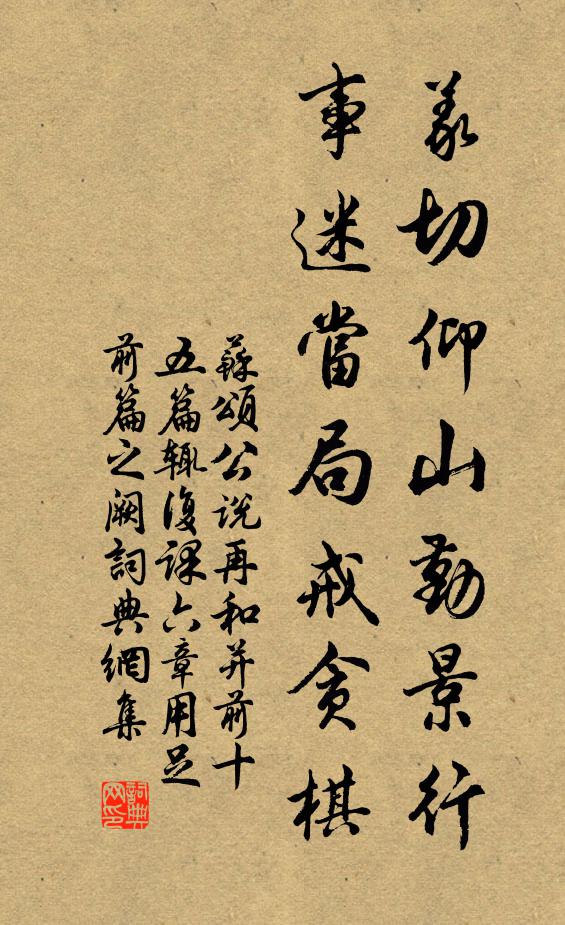 義切仰山勤景行
事迷當局戒貪棋
蘇頌公説再和并前十
五篇辄復課六章用足
前篇之阙詞典網集
詞典网印